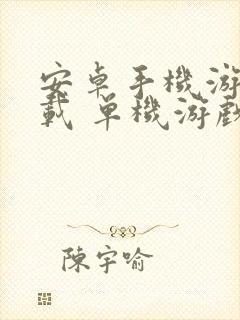 安卓手機游
載 單機游戲
陳宇喻